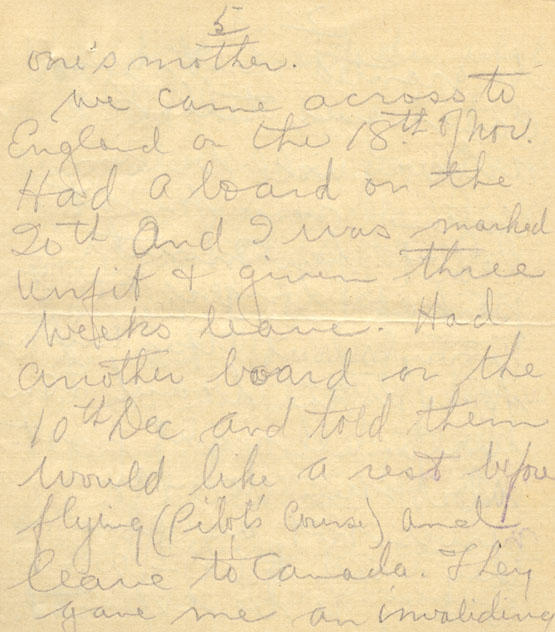 5
one's mother.
We came across to
England on the 18th of Nov.
Had a board on the
20th And I was marked
unfit & given three
weeks leave. Had
another board on the
10th Dec and told them
would like a rest before
flying (Pilot's Course) and
leave to Canada. They
gave me an invaliding